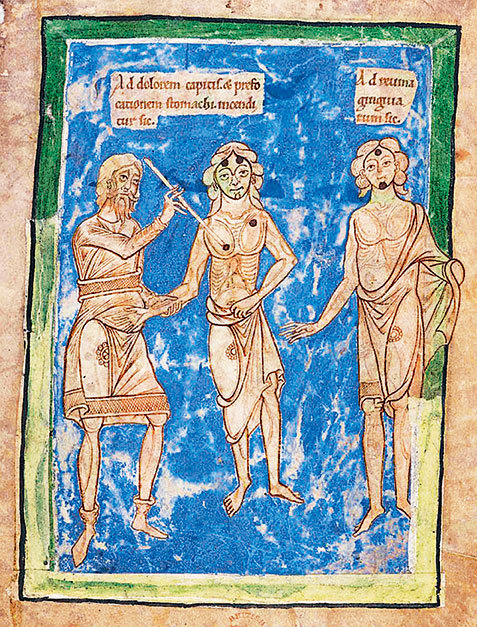 Ad dolorem capitis. & prefo
cationem stomachi. incendi
tur sic.
Ad reuma
gingiua
rum sic.